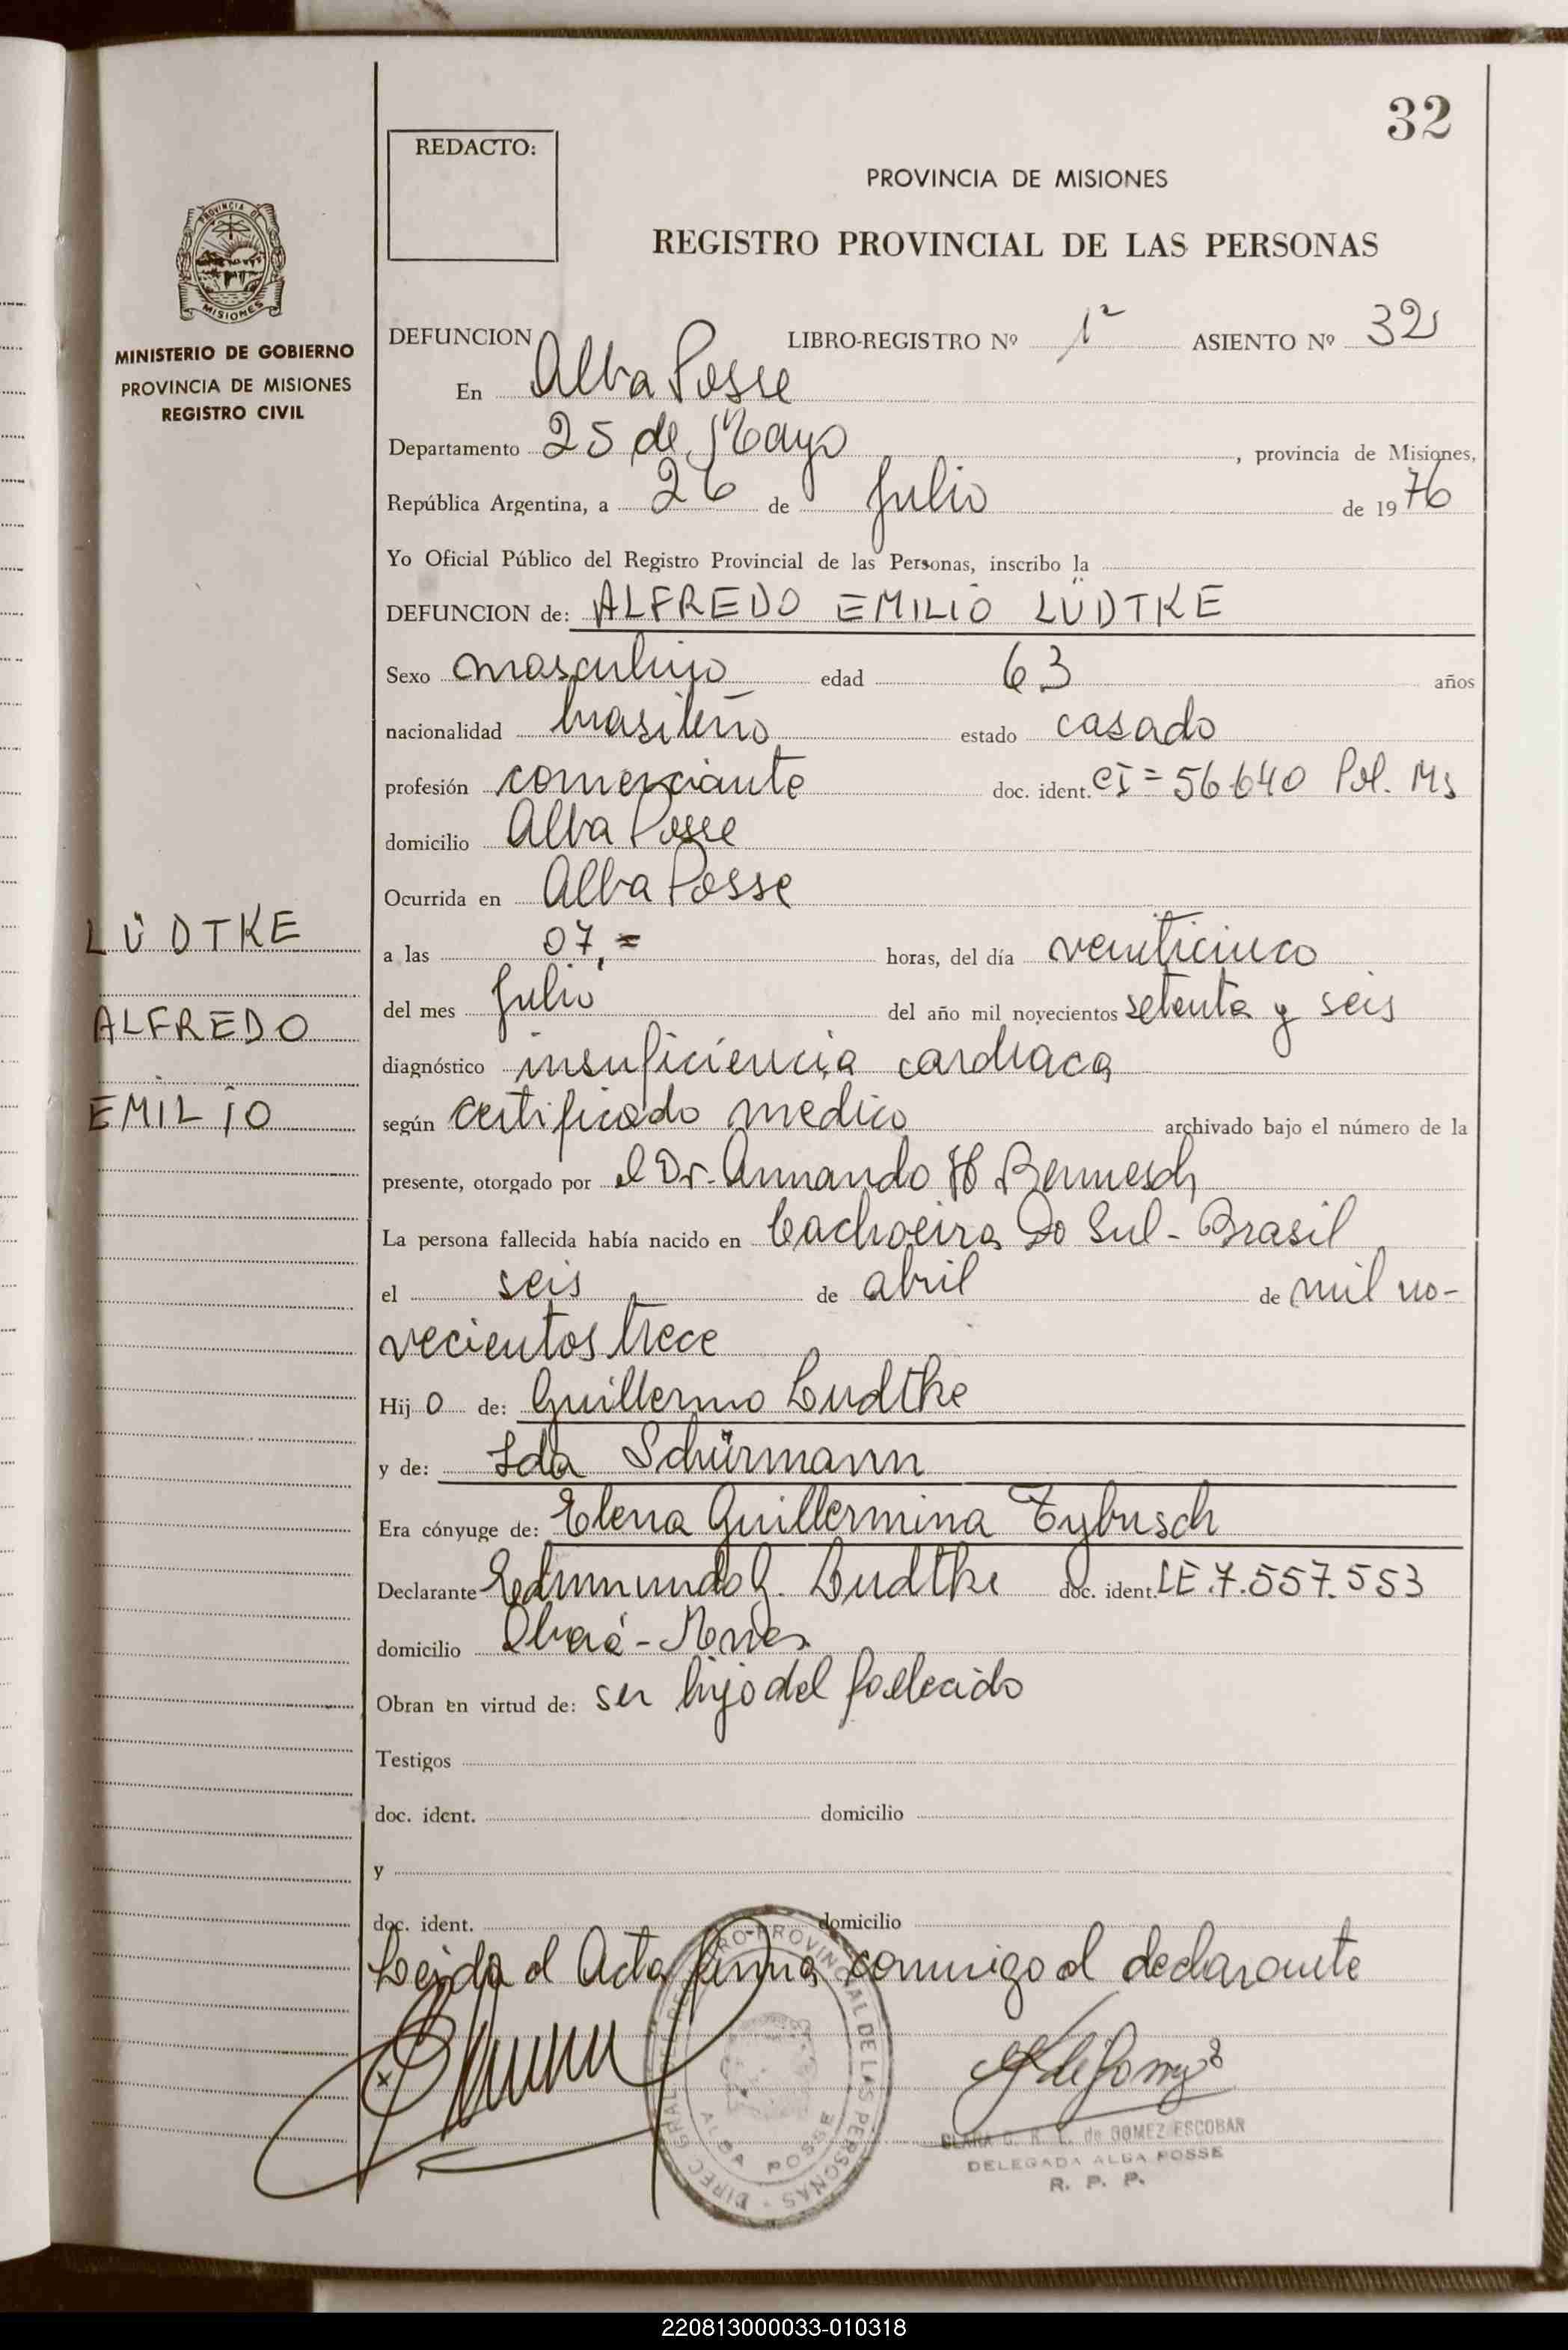 32
REDACTO:
PROVINCIA DE MISIONES
REGISTRO PROVINCIAL DE LAS PERSONAS
PROVINCIA DE
MISIONES
MINISTERIO DE GOBIERNO
PROVINCIA DE MISIONES
REGISTRO CIVIL
DEFUNCION LIBRO-REGISTRO Nº 1º ASIENTO Nº 32
En Alba Posse
Departamento 25 de Mayo, provincia de Misiones,
República Argentina, a 26 de Julio de 1976
Yo Oficial Público del Registro Provincial de las Personas, inscribo la
DEFUNCION de: ALFREDO EMILIO LÜDTKE
Sexo masculino edad 63 años
nacionalidad brasileño estado casado
profesión comerciante doc. ident. CI=56.640 Pol. Ms
domicilio Alba Posse
Ocurrida en Alba Posse
LÜDTKE
ALFREDO
EMILIO
a las 07,= horas, del día veinticinco
del mes Julio del año mil novecientos setenta y seis
diagnóstico insuficiencia cardiaca
según certificado medico archivado bajo el número de la
presente, otorgado por el Dr. Armando H
La persona fallecida había nacido en Cachoeira Do Sul - Brasil
el seis de abril de mil no-
vecientos trece
Hijo de: Guillermo Ludtke
y de: Ida Schürmann
Era cónyuge de: Elena Guillermina Tybusch
Declarante Edmundo G. Ludtke doc. ident. LE.7.557.553
domicilio Oberá - Mnes.
Obran en virtud de: ser hijo del fallecido
Testigos
doc. ident. domicilio
y
doc. ident. domicilio
Leida el Acta firma conmigo el declarante
DIREC. GRAL. DEL REGISTRO PROVINCIAL DE LAS PERSONAS
ALBA POSSE
CLARA C. R. L. de GOMEZ ESCOBAR
DELEGADA ALBA POSSE
R. P. P.
220813000033-010318